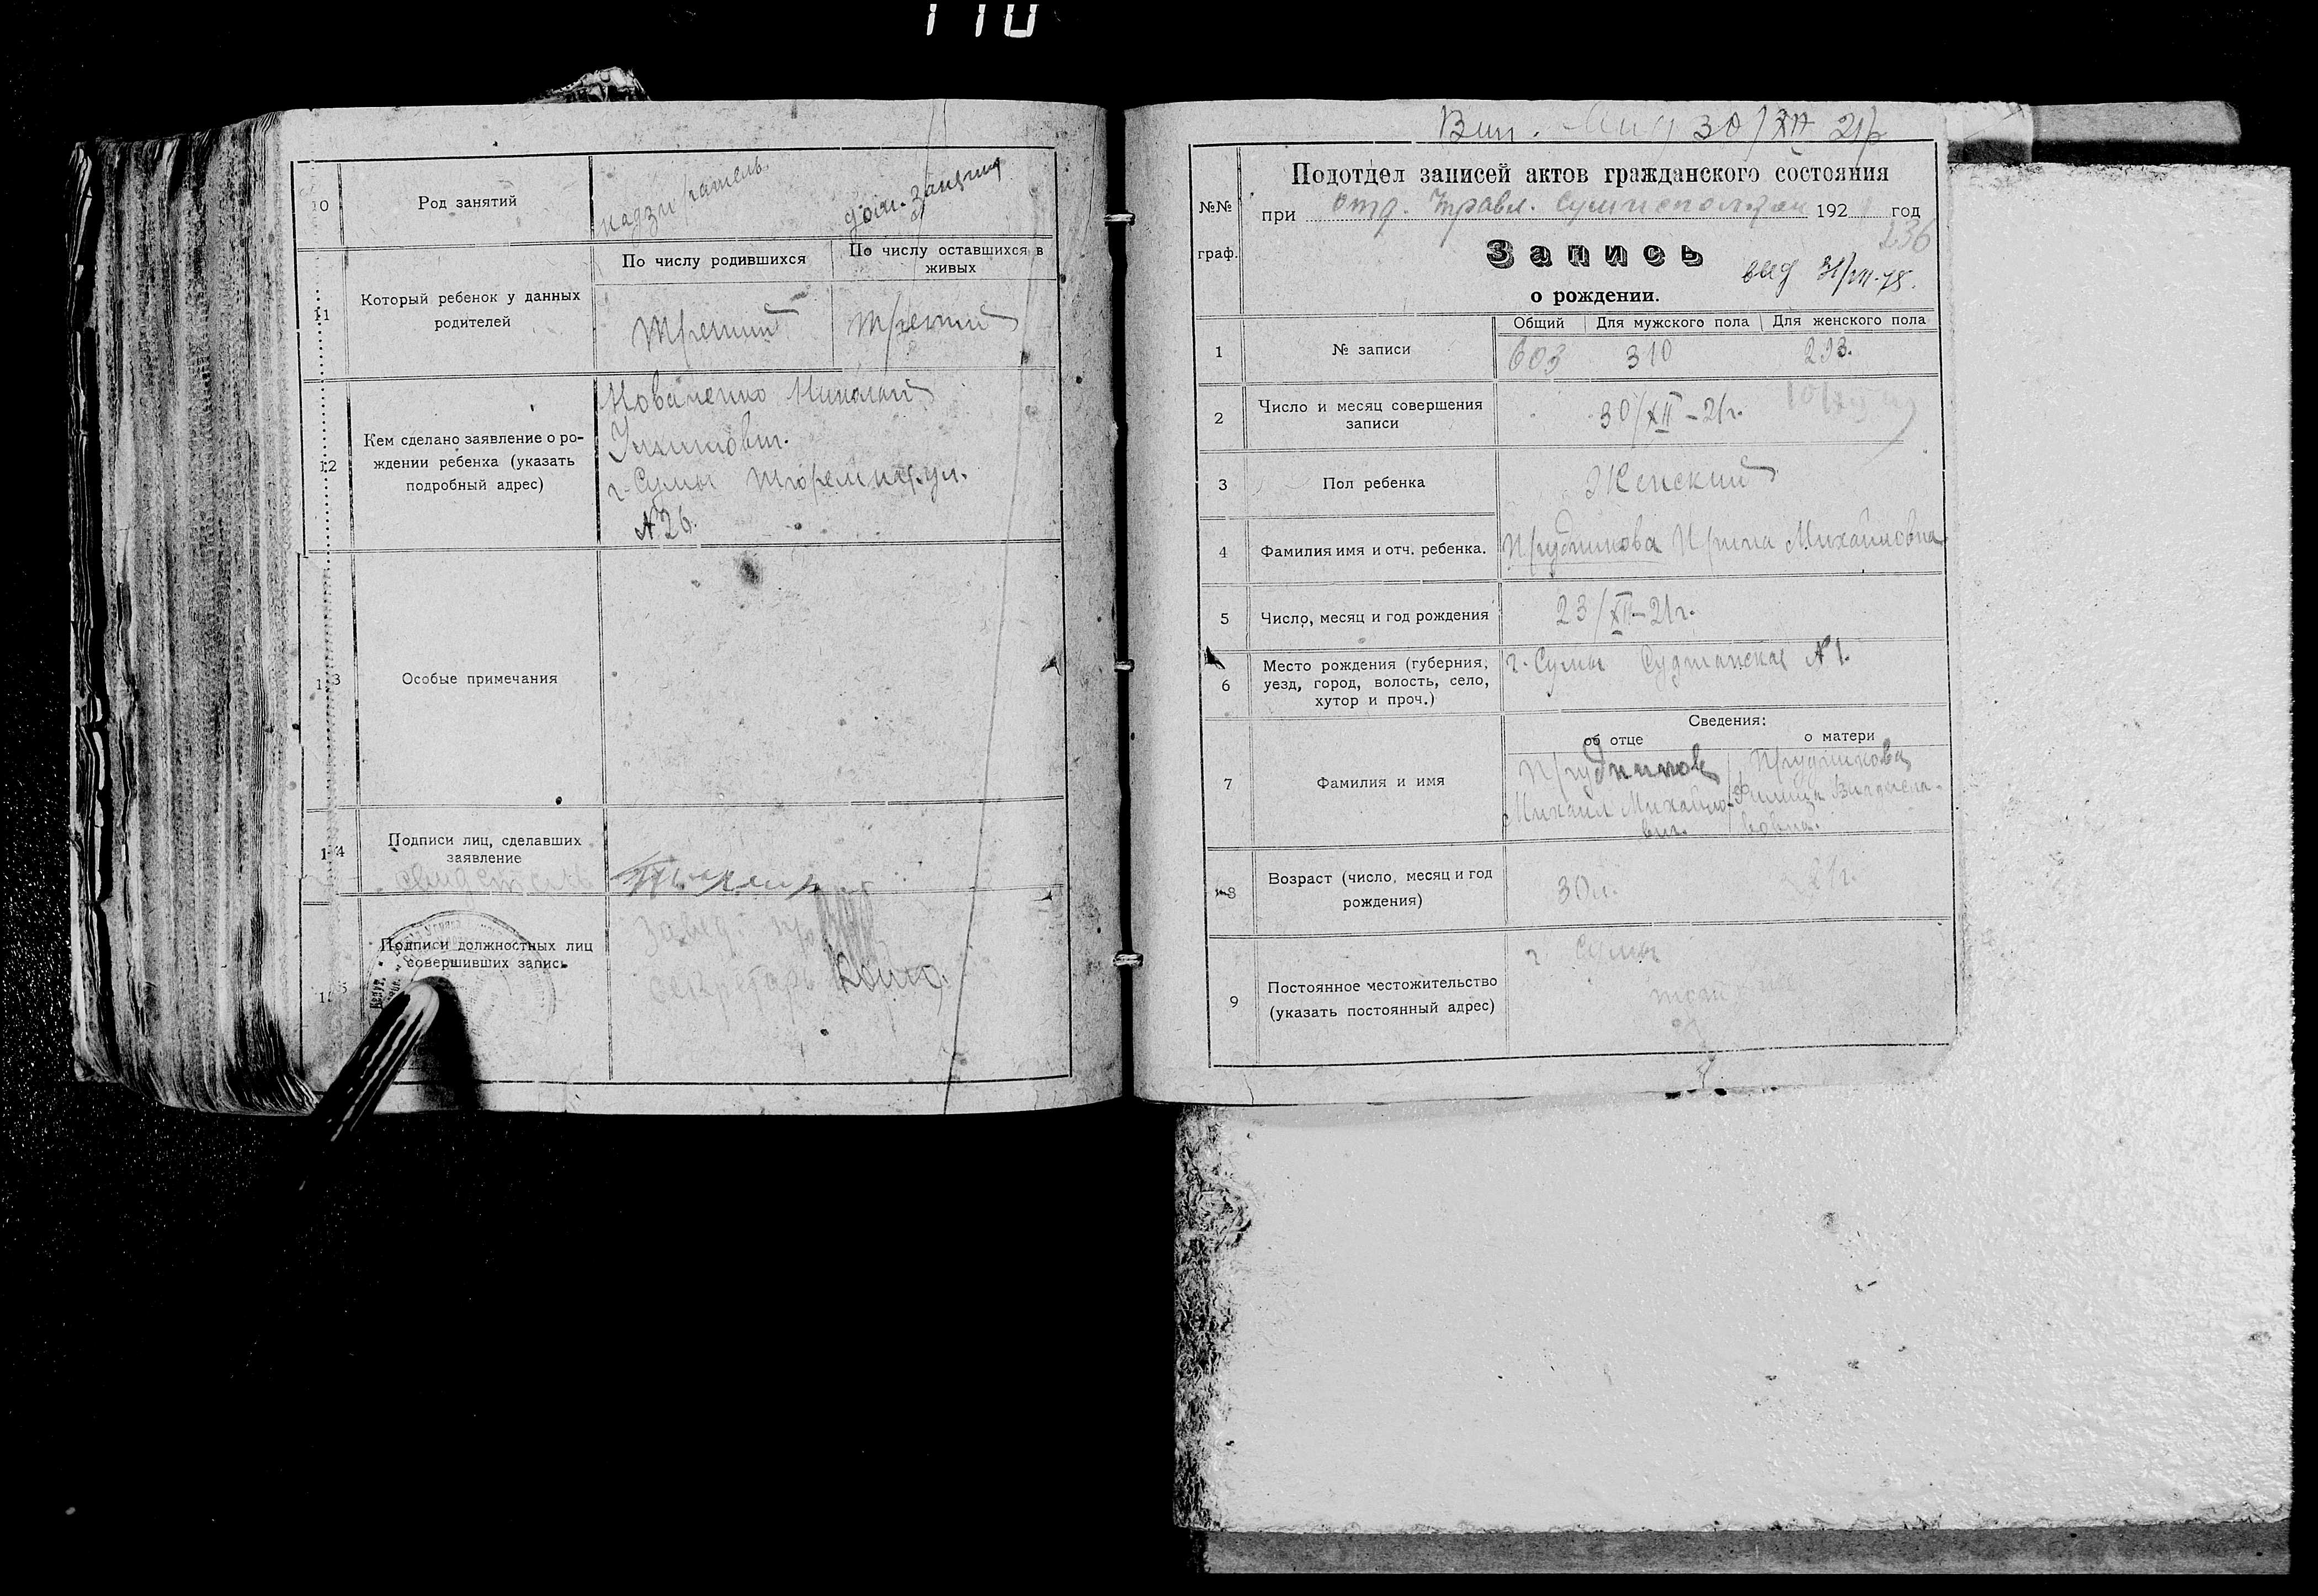 110
10
Род занятий
надзиратель
дом. зан
11
Который ребенок у данных
родителей
По числу родившихся
По числу оставшихся в
живых
Третий
Третий
12
Кем сделано заявление о ро-
ждении ребенка (указать
подробный адрес)
Николай
г. Сумы ул.
№ 26.
13
Особые примечания
14
Подписи лиц, сделавших
заявление
15
Подписи должностных лиц
совершивших запись
Завед.
секретарь
30/XII 21г
№№
граф.
Подотдел записей актов гражданского состояния
при Отд. Управл. 192 год
236
Запись
о рождении.
выд 31/VII-75.
1
№ записи
Общий
Для мужского пола
Для женского пола
603
310
293.
2
Число и месяц совершения
записи
30/XII-21г.
3
Пол ребенка
Женский
4
Фамилия имя и отч. ребенка.
Прудникова Ирина Михайловна
5
Число, месяц и год рождения
23/XII-21г.
6
Место рождения (губерния,
уезд, город, волость, село,
хутор и проч.)
г. Сумы Суджанская № 1.
Сведения:
об отце
о матери
7
Фамилия и имя
Прудников
Михаил Михайло-
вич.
Прудникова
8
Возраст (число, месяц и год
рождения)
30 л.
21г.
9
Постоянное местожительство
(указать постоянный адрес)
г Сумы